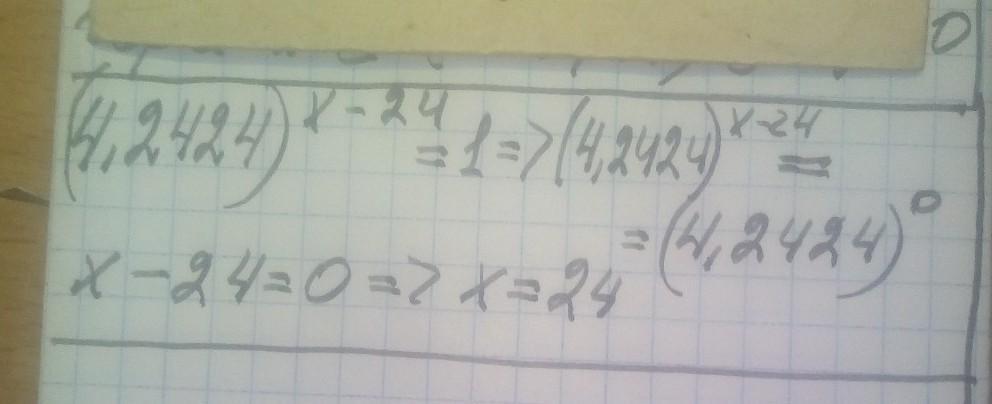 0
(4,2424)^{x-24} = 1 => (4,2424)^{x-24} =
= (4,2424)^0
x - 24 = 0 => x = 24